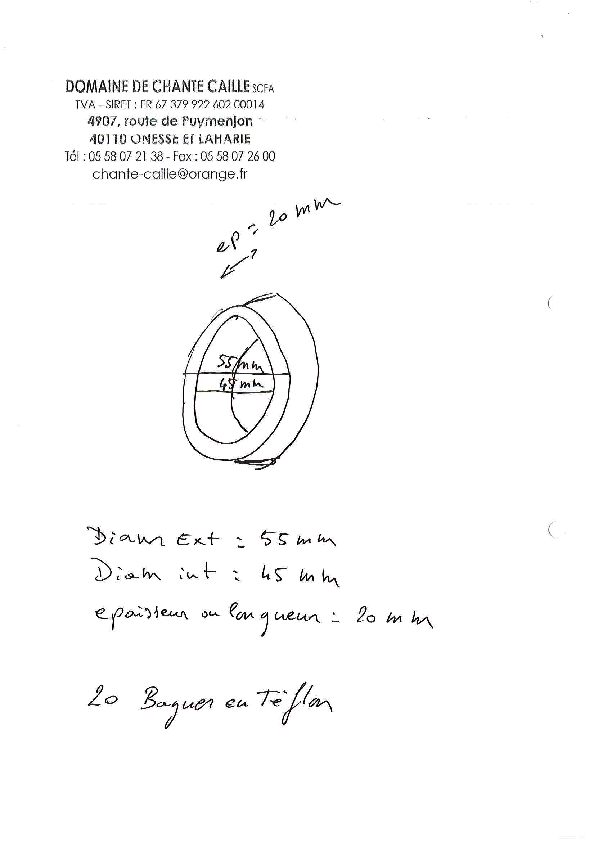 DOMAINE DE CHANTE CAILLE SCEA
TVA - SIRET : FR 67 379 922 602 00014
4907, route de Puymenjon
40110 ONESSE ET LAHARIE
Tél : 05 58 07 21 38 - Fax : 05 58 07 26 00
chante-caille@orange.fr
ep = 20 mm
55 mm
45 mm
Diam Ext = 55 mm
Diam int = 45 mm
epaisseur ou longueur = 20 mm
20 Bagues en Téflon